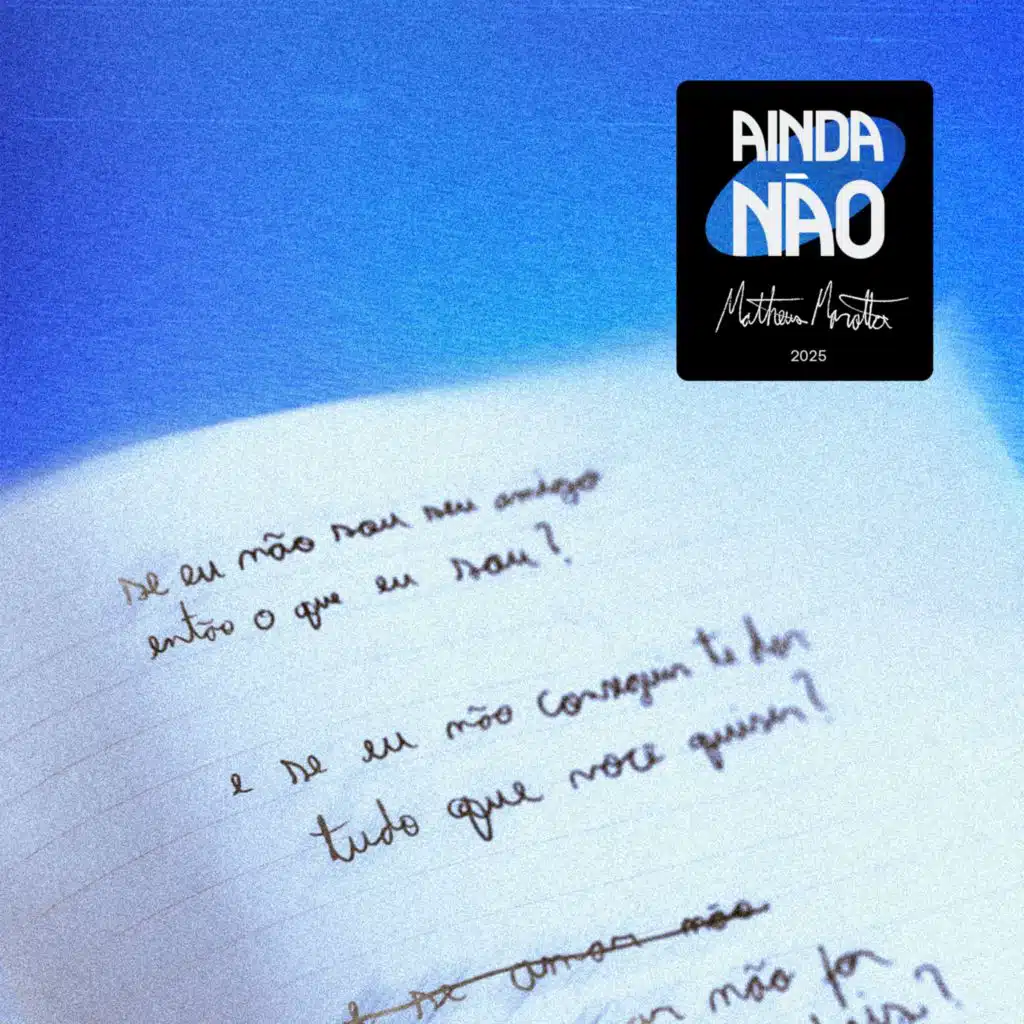 AINDA
NÃO
Matheus Marotta
2025
se eu não sou seu amigo
então o que eu sou?
e se eu não conseguir te dar
tudo que você quiser?
e se amar não
não for